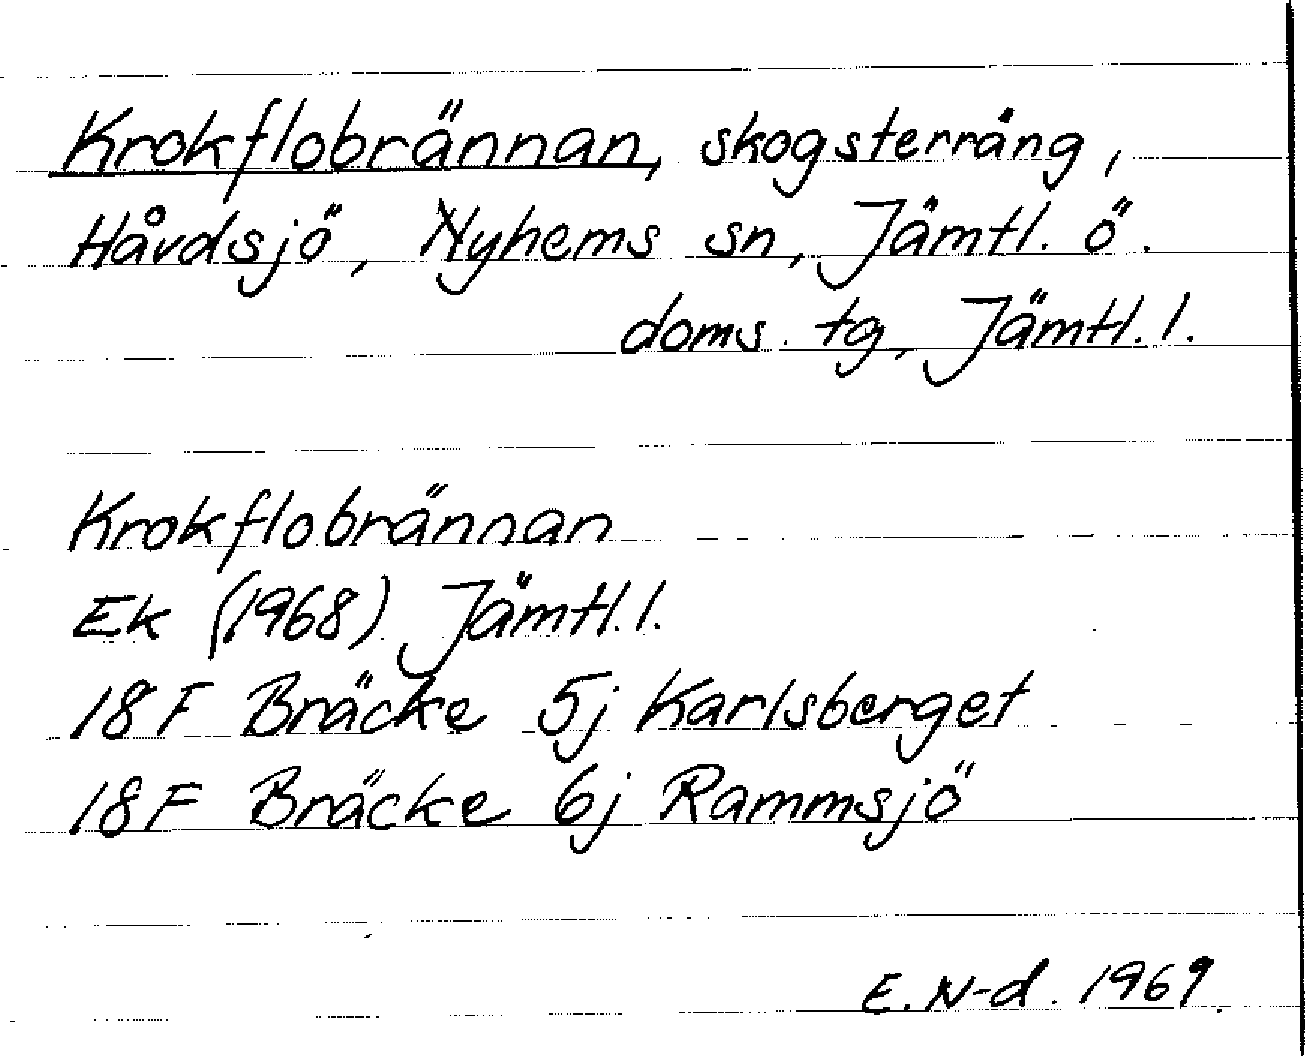 Krokflobrännan, skogsterräng,
Håvdsjö, Nyhems sn, Jämtl. ö.
doms. tg, Jämtl. l.
Krokflobrännan
Ek (1968) Jämtl. l.
18F Bräcke 5j Karlsberget
18F Bräcke 6j Rammsjö
E. N-d. 1969.